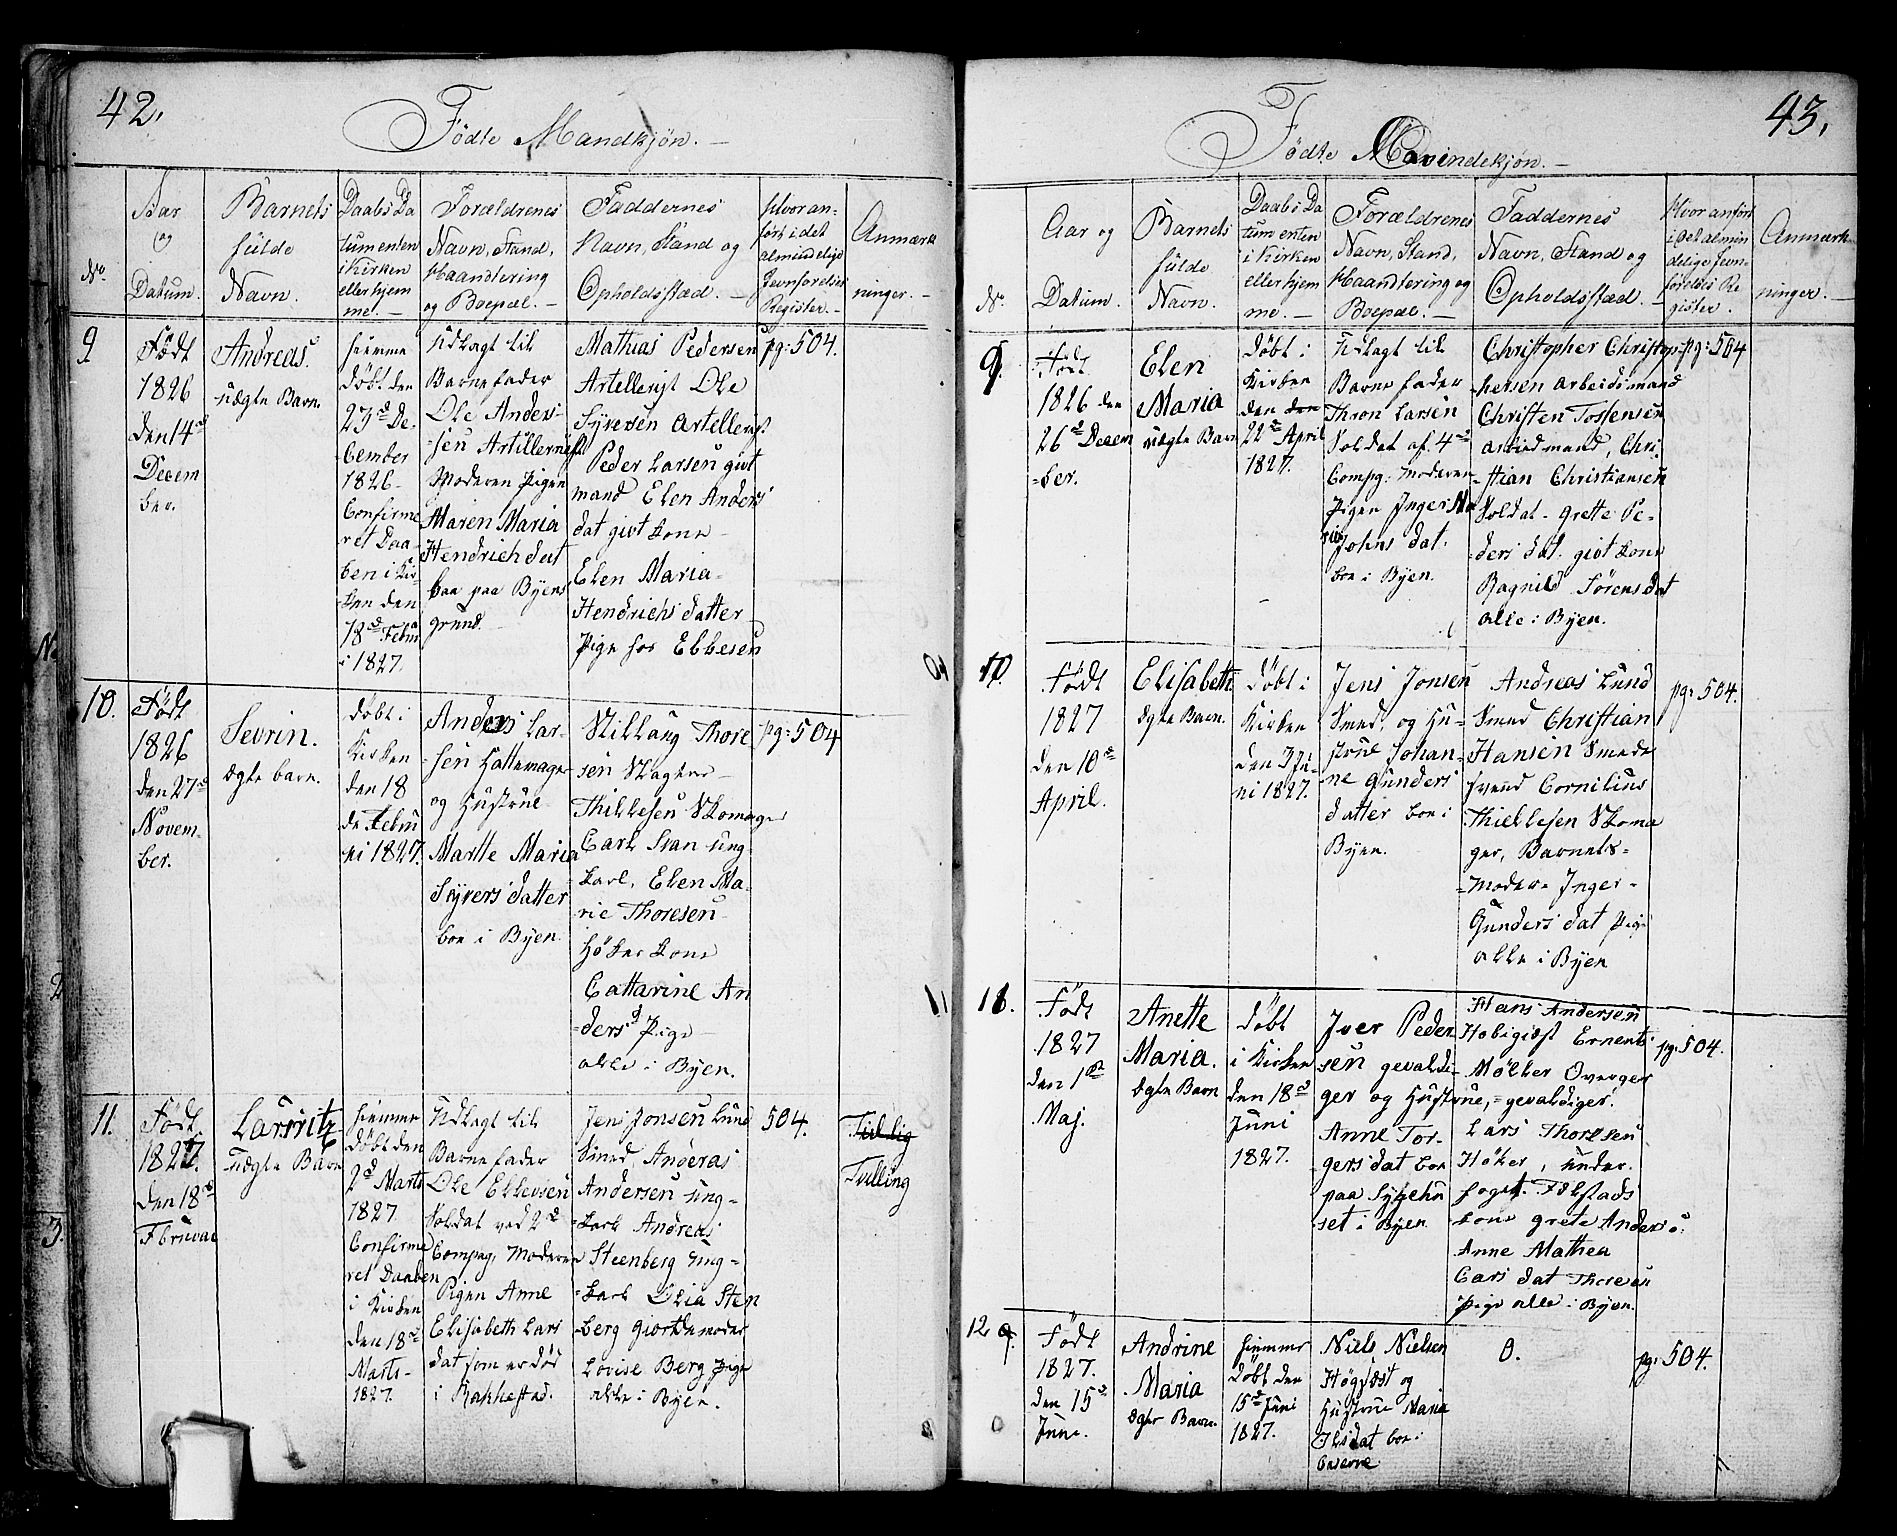 42.
Födte Mandkjøn. —
No.
Aar
og
Datum.
Barnets
fulde
Navn.
Daabs Da
tum enten
i Kirken
eller hjem
me. —
Forældrenes
Navn, Stand,
Haandtering
og Boepæl. —
Faddernes
Navn, Stand og
Opholdsstæd. —
Hvor an-
ført i det
almindelige
Jevnførelses
Register. —
Anmærk
ninger. —
9
Født
1826
den 14d
Decem
ber.
Andreas.
uægte Barn.
hiemme
døbt den
23d De-
cember
1826-
Confirme
ret Daa-
ben i Kir-
ken den
18d Febru
i 1827.
Udlagt til
Barnefader
Ole Anders-
sen Artillerist
Moderen Pigen
Maren Maria
Hendrichdat
boe paa Byens
grund.
Mathias Pedersen
Artellerist Ole
Syversen Artellerist
Peder Larsen givt
mand Elen Anders
dat givt kone -
Elen Maria-
Hendrichsdatter
Pige hos Ebbesen
pg: 504.
10.
Født
1826
den 27d
Novem-
ber.
Sevrin.
ægte barn.
døbt i
Kirken
den 18
de Febru
ri 1827.
Anders Lar-
sen Hattemager
og Hustrue
Marlte Maria
Syversdatter
boe i Byen.
Thore
sen Slagter -
Thillesen Skomager
Carl Svan ung-
karl, Elen Ma-
rie Thoresen
Høker kone
Cattarine An
dersd Pige -
alle i Byen.
pg: 504
11.
Født
1827.
den 18d
Februar
Laurritz
uægte Barn
hiemme
døbt den
2d Marts
1827.
Confirme
ret Daaben
i Kirken
den 18d
Marts-
1827.
Udlagt til
Barnefader
Ole Ellevsen
Soldat ved 2d
Compag, Moderen
Pigen Anne
Elisabeth Lars
dat som er død
i Rakkestad.
Jens Jonsen Lund
Smed, Anderas
Andersen ung-
karl Andreas
Steenberg ung-
karl Olia Sten
berg Giordemoder
Lovise Berg Pige
alle i Byen.
504.
Tvillig
Tvilling
43.
Födte Qvindekjøn. —
No.
Aar og
Datum.
Barnets
fulde
Navn.
Daabs Da
tum enten
i Kirken
eller hjem
me. —
Forældrenes
Navn, Stand,
Haandtering og
Boepæl. —
Faddernes
Navn, Stand og
Opholdsstæd. —
Hvor anført
i det almin
delige Jevn-
førelses Re
gister.
Anmærk
ninger. —
9.
Født
1826 den
26d Decem
ber.
Elen
Maria
uægte Barn
Døbt i
Kirken
den den
22d April
1827.
Udlagt til
Barnefader
Thron Larsen
Soldat af 4d
Compg: Moderen
Pigen Inger Ma
ria Johns dat.
boe i Byen.
Christopher Christop-
hersen arbeidsmand
Christen Tostensen
arbeidmand, Chri-
stian Christiansen
Soldat - Grette Pe-
ders dat. givt kone
Ragnild Sörensdat
alle i Byen.
pg: 504
10.
Født
1827
den 10de
April.
Elisabeth
ægte Barn.
Døbt i
Kirken
den 3 Ju-
ni 1827.
Jens Jonsen
Smed, og Hu-
strue Johan-
ne Gunders
datter boe i
Byen.
Andreas Lund
Smed Christian
Hansen Smede
svend Cornilius
Thiellesen Skoma
ger, Barnets-
moder Inger-
Gundersdat Pige
alle i Byen
pg: 504.
11.
Født
1827
den 1de
Maj.
Anette
Maria.
ægte Barn
døbt
i Kirken
den 18d
Juni
1827.
Iver Peder
sen gevaldi-
ger og Hustrue,
Anne Tor-
gersdat boe
paa Sygehu
set i Byen.
Hans Andersen
Møller Overger
gevaldiger.
Lars Thoresen
Höker, under-
foget. Fælstads
kone Grete Anders:
Anne Mathea
Carsdat Thoresen
Pige alle i Byen.
pg: 504.
12
Født
1827.
den 15d
Juni.
Andrine
Maria
ægte Barn.
hiemme
døbt den
15d Juni
1827.
Niels Nielsen
og
Hustrue Maria
Olsdat boe i
0.
pg: 504.